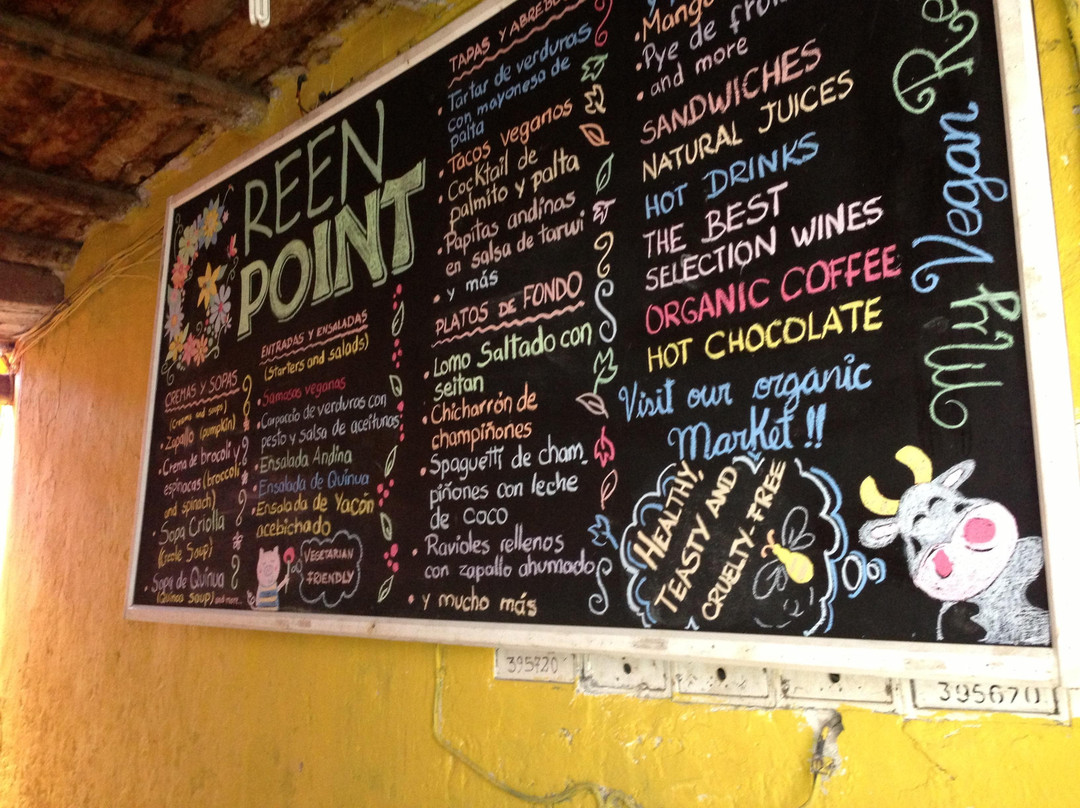 REEN
POINT
CREMAS Y SOPAS
(Creams and soups)
• Zapallo (pumpkin)
• Crema de brocoli y
espinacas (broccoli
and spinach)
• Sopa Criolla
(Creole Soup)
• Sopa de Quinua
(Quinoa Soup) and more...
ENTRADAS Y ENSALADAS
(Starters and salads)
• Samosas veganas
• Carpaccio de verduras con
pesto y salsa de aceitunas
• Ensalada Andina
• Ensalada de Quinua
• Ensalada de Yacón
acebichado
VEGETARIAN
FRIENDLY
TAPAS Y
• Tartar de verduras
con mayonesa de
palta
• Tacos veganos
• Cocktail de
palmito y palta
• Papitas andinas
en salsa de tarwi
• y más
PLATOS DE FONDO
• Lomo Saltado con
seitan
• Chicharrón de
champiñones
• Spaguetti de cham_
piñones con leche
de coco
• Ravioles rellenos
con zapallo ahumado
• y mucho más
• Mango
• Pye de
• and more
SANDWICHES
NATURAL JUICES
HOT DRINKS
THE BEST
SELECTION WINES
ORGANIC COFFEE
HOT CHOCOLATE
Visit our organic
Market !!
HEALTHY,
TEASTY AND
CRUELTY-FREE
My Vegan Re
395720
395670